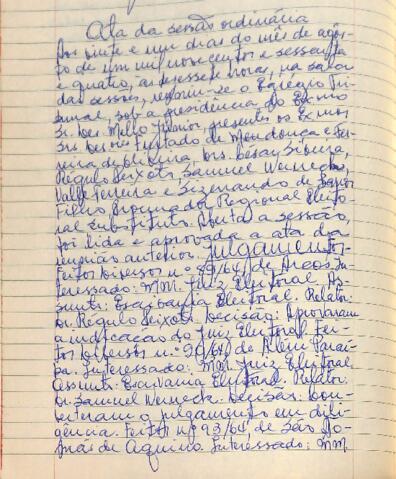 Ata da sessão ordinária
Aos vinte e um dias do mês de agôs-
to de um mil novecentos e sessenta
e quatro, às dezessete horas, na sala
das sessões, reuniu-se o Egrégio Tri-
bunal, sob a presidência do Exmo
Sr. Des. Mello Júnior, presentes os Exmos.
Srs. Des. Furtado de Mendonça e Fer-
reira de Oliveira, Drs. César Silveira,
Régulo Peixoto, Samuel Werneck,
Valle Ferreira e Sizenando de Barros
Filho, Procurador Regional Eleito-
ral Substituto. Aberta a sessão,
foi lida e aprovada a ata da
reunião anterior. Julgamentos.
Feitos Diversos nº 89/64, de Arcos. In-
teressado: MM. Juiz Eleitoral. As-
sunto: Escrivania Eleitoral. Relator:
Dr. Régulo Peixoto. Decisão: Aprovaram
a indicação do Juiz Eleitoral. Fei-
tos Diversos nº 90/64, de Além Paraí-
ba. Interessado: MM. Juiz Eleitoral.
Assunto: Escrivania Eleitoral. Relator:
Dr. Samuel Werneck. Decisão: Con-
verteram o julgamento em dili-
gência. Feitos nº 93/64, de São To-
más de Aquino. Interessado: MM.